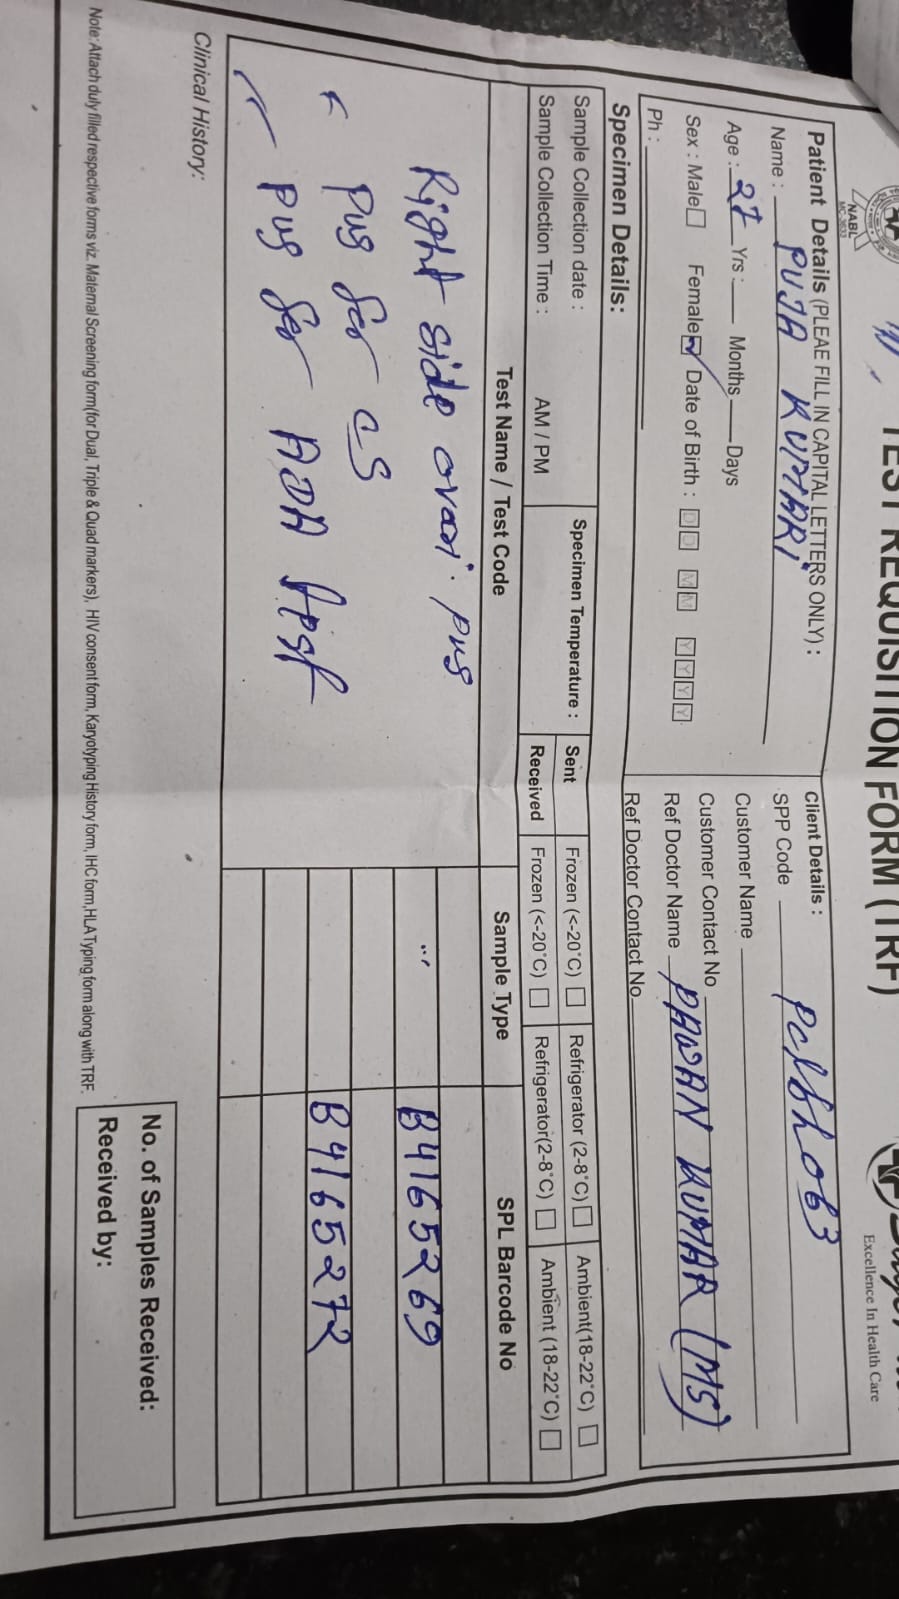 TEST REQUISITION FORM (TRF)
Excellence In Health Care
NABL
Patient Details (PLEAE FILL IN CAPITAL LETTERS ONLY) :
Name : PUJA KUMARI
Age : 27 Yrs : Months Days
Sex : Male Female Date of Birth : D D M M Y Y Y Y
Ph :
Client Details :
SPP Code
Customer Name
Customer Contact No
Ref Doctor Name PAWAN KUMAR (MS)
Ref Doctor Contact No
Specimen Details:
Sample Collection date :
Sample Collection Time : AM / PM
Specimen Temperature :
Sent Frozen (<-20°C) Refrigerator (2-8°C) Ambient(18-22°C)
Received Frozen (<-20°C) Refrigerator(2-8°C) Ambient (18-22°C)
Test Name / Test Code Sample Type SPL Barcode No
Right side ovari. pus
B4165269
pus for CS
B4165272
pus for ADA
Clinical History:
No. of Samples Received:
Received by:
Note: Attach duly filled respective forms viz. Maternal Screening form(for Dual, Triple & Quad markers), HIV consent form, Karyotyping History form, IHC form,HLA Typing form along with TRF.